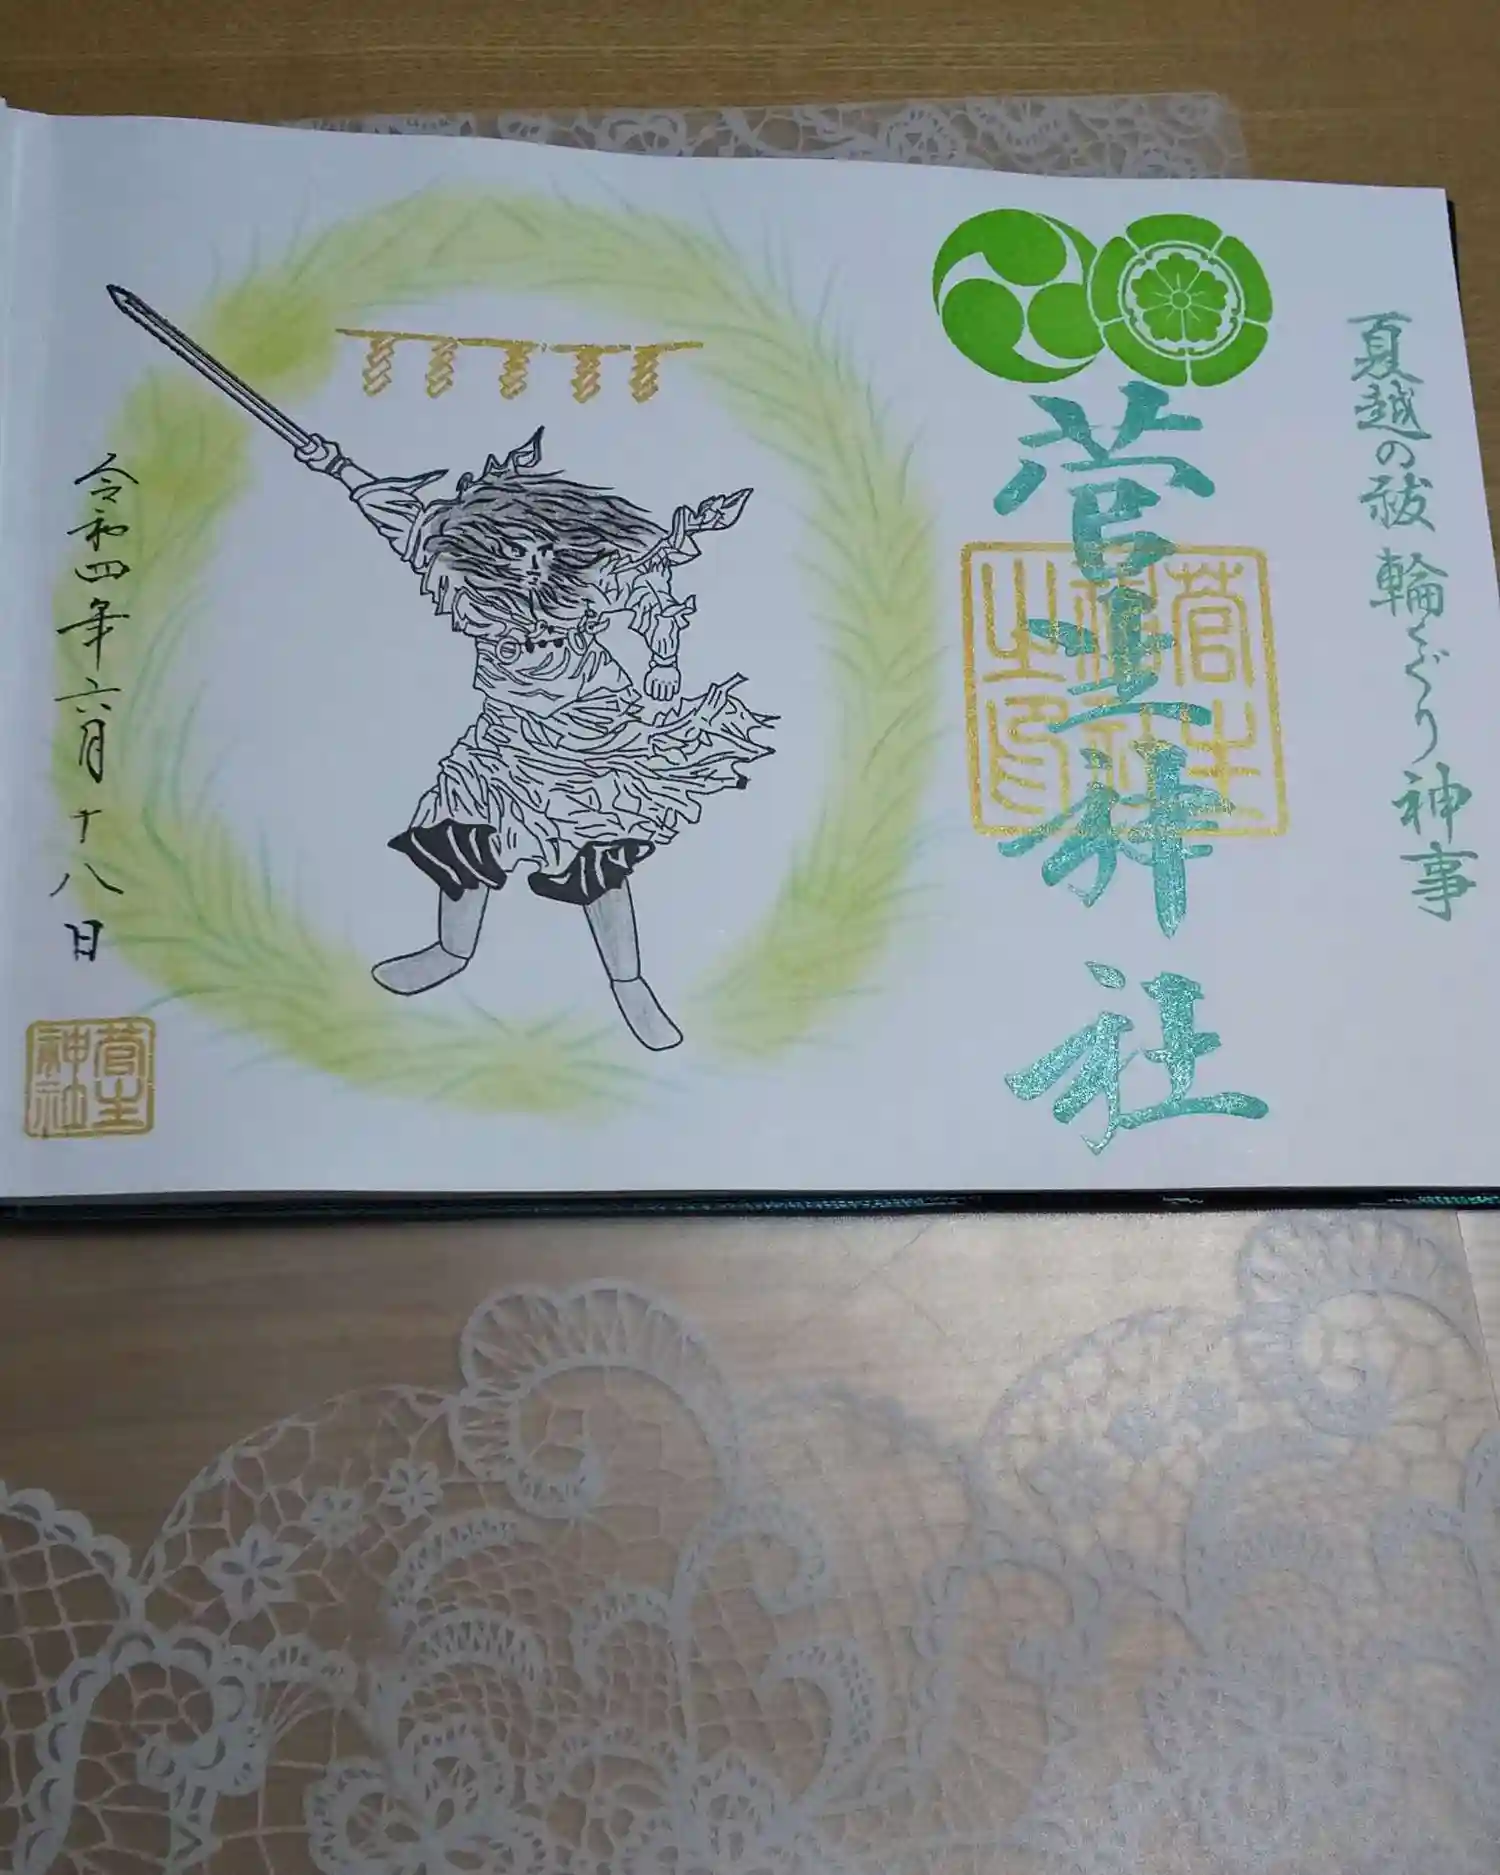 夏越の祓 輪くぐり神事
菅生神社
菅生神社之印
令和四年六月十八日
菅生神社